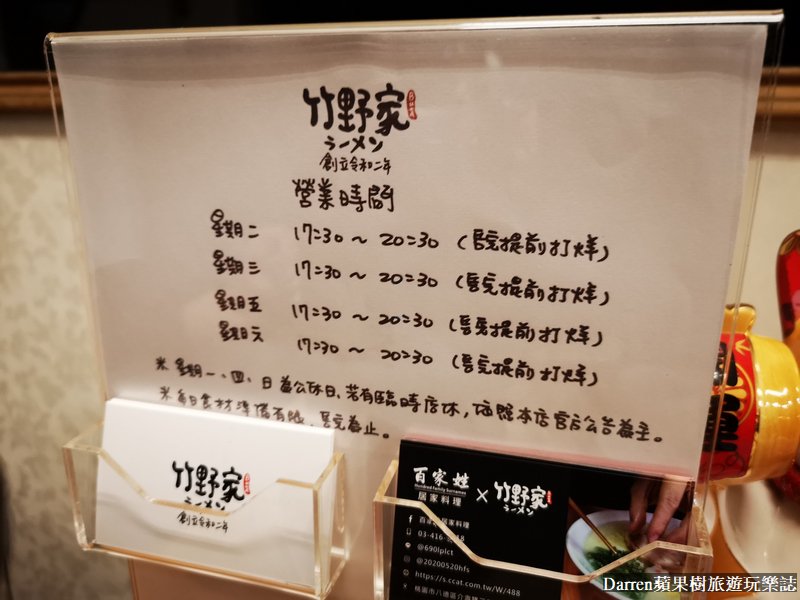 竹野家
ラーメン
創立令和二年
營業時間
星期二 17:30 ~ 20:30 (售完提前打烊)
星期三 17:30 ~ 20:30 (售完提前打烊)
星期五 17:30 ~ 20:30 (售完提前打烊)
星期六 17:30 ~ 20:30 (售完提前打烊)
※ 星期一、四、日為公休日,若有臨時店休,依照本店官方公告為主。
※ 每日食材準備有限,售完為止。
竹野家
ラーメン
創立令和二年
百家姓 × 竹野家
Hundred Family Surnames ラーメン
居家料理
百家姓居家料理
03-416-
@690lplct
@20200520hfs
https://s.ccat.com.tw/W/488
桃園市八德區介壽路
Darren蘋果樹旅遊玩樂誌